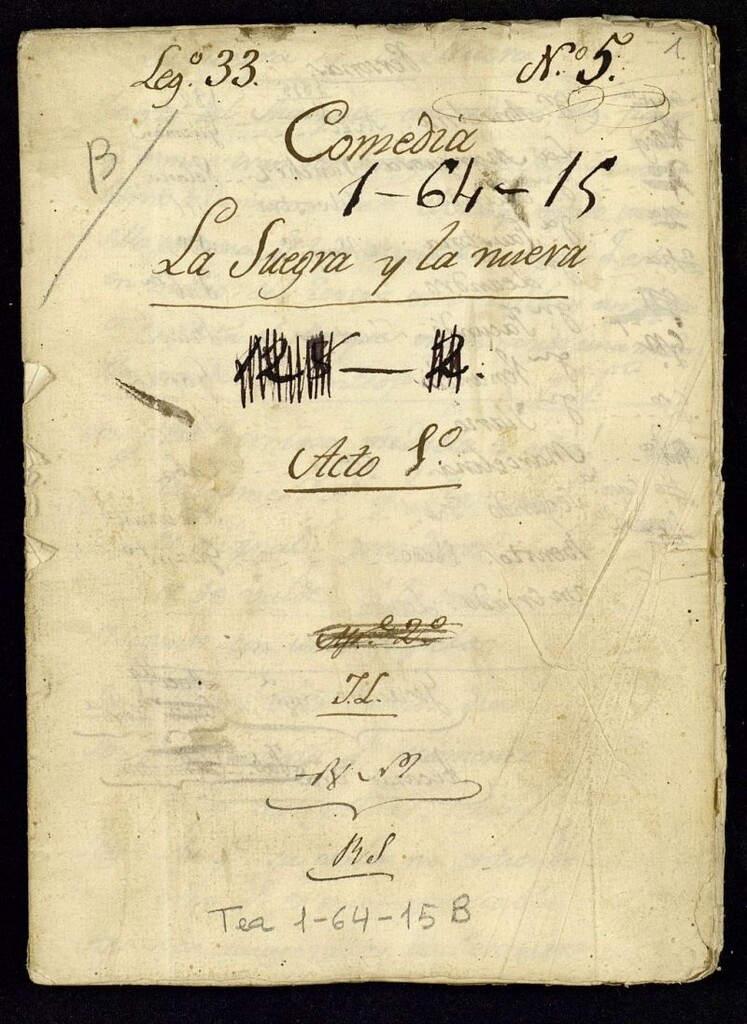 Leg.º 33. N.º 5º. 1
B
Comedia
1-64-15
La Suegra y la nuera
Acto 1º
N.º 2º
J.L.
RS
Tea 1-64-15 B